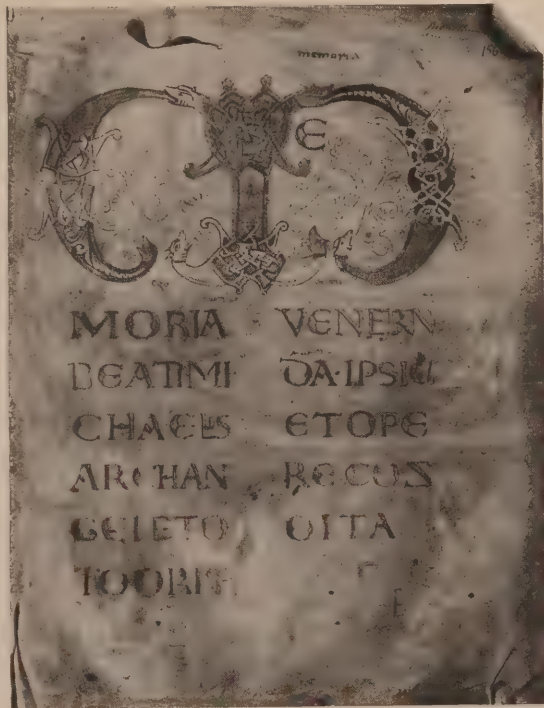 memoria
ME
MORIA
BEATIMI
CHAELIS
ARCHAN
GELI ETO
TOORBE
VENERN
DA·IPSIU
ETOPE
RECUS
OITA